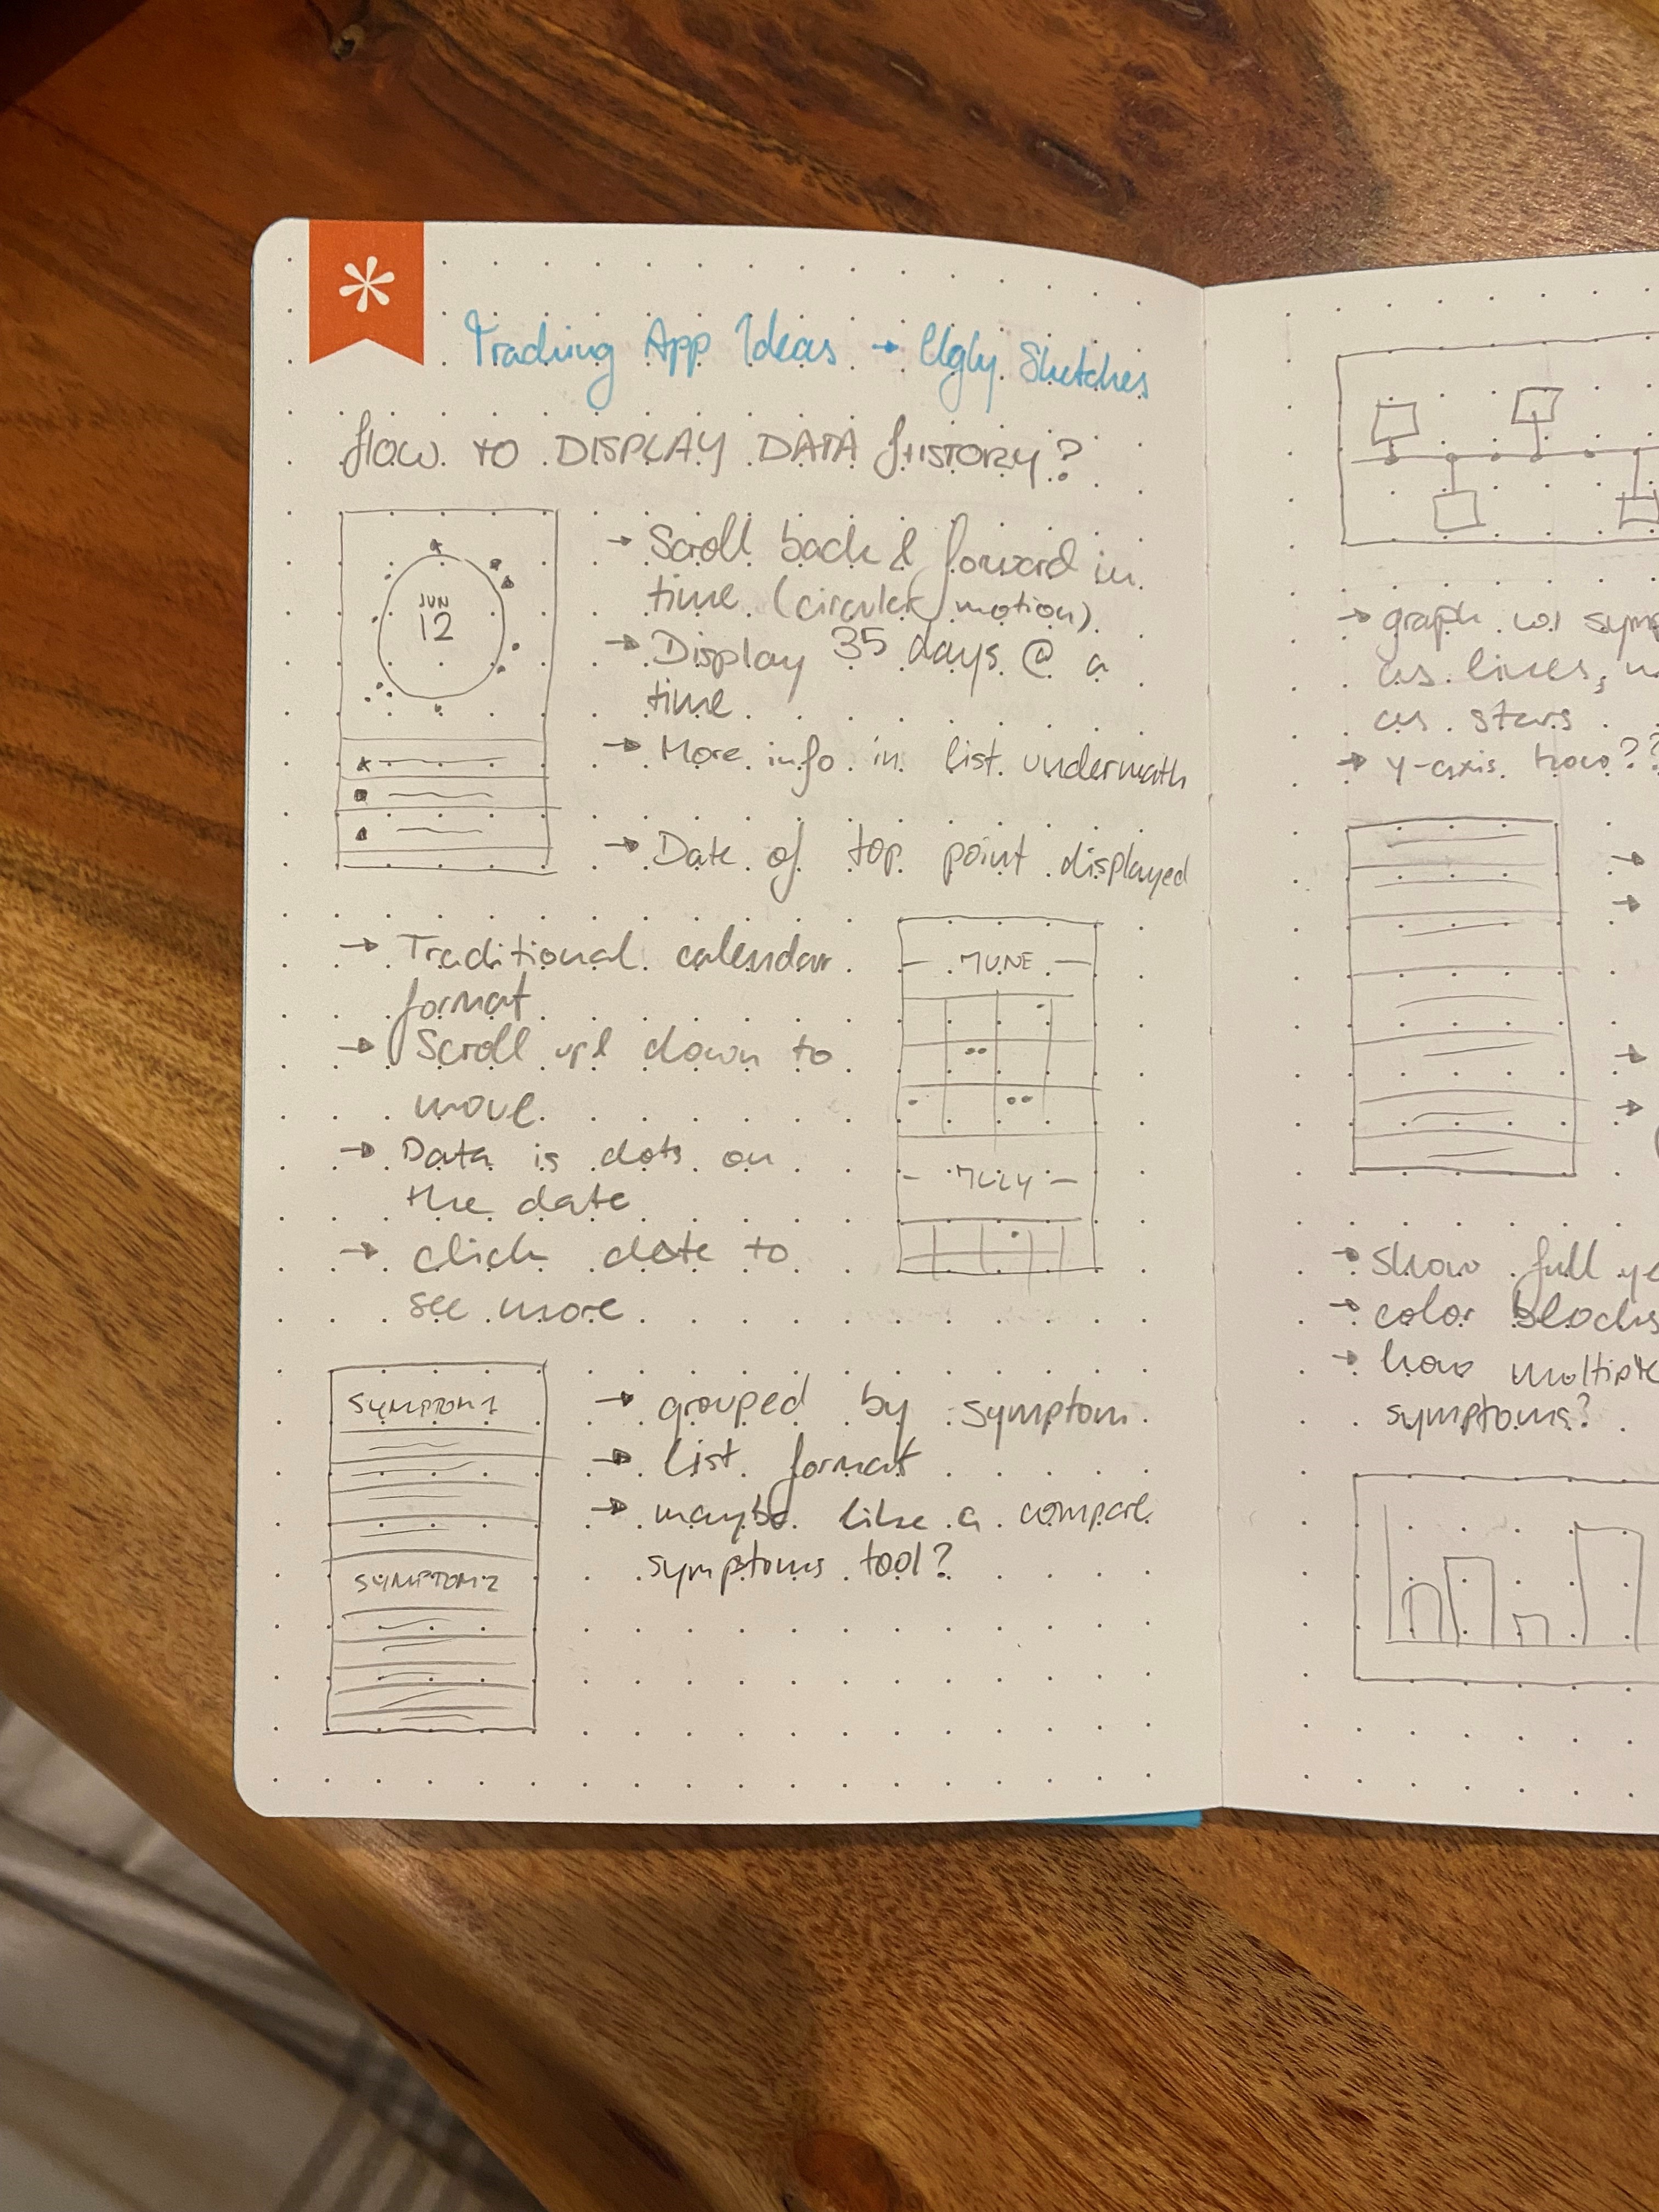 Tracking App Ideas → Ugly Sketches
HOW TO DISPLAY DATA HISTORY?
JUN
12
→ Scroll back & forward in
time (circular motion)
→ Display 35 days @ a
time
→ More info in list underneath
→ Date of top point displayed
→ Traditional calendar
format
→ Scroll up & down to
move
→ Data is dots on
the date
→ click date to
see more
- JUNE -
- JULY -
SYMPTOM 1
SYMPTOM 2
→ grouped by symptom
→ list format
→ maybe like a compare
symptoms tool?
→ graph w/
as lines,
as stars
→ y-axis how??
→
→
→
→
→ show full
→ color blocks
→ how multiple
symptoms?